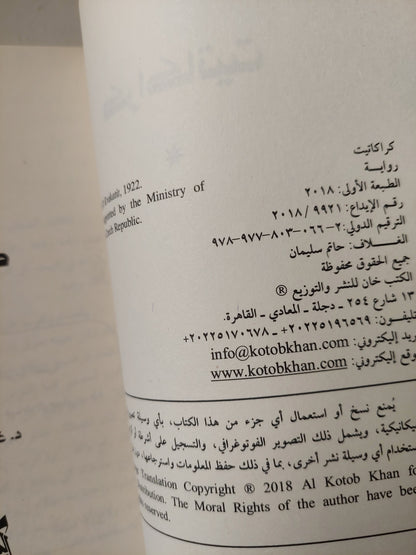 كراكاتيت
رواية
الطبعة الأولى: ٢٠١٨
رقم الإيداع: ٩٩٢١ / ٢٠١٨
الترقيم الدولي: ٢-٠٦٦-٨٠٣-٩٧٧-٩٧٨
الغلاف: حاتم سليمان
جميع الحقوق محفوظة
الكتب خان للنشر والتوزيع ®
١٣ شارع ٢٥٤ - دجلة - المعادي - القاهرة.
تليفون: ٢٠٢٢٥١٩٦٥٦٩+ - ٢٠٢٢٥١٧٠٦٧٨+
info@kotobkhan.com
إليكتروني: www.kotobkhan.com
1922.
by the Ministry of
Republic.
يُمنع نسخ أو استعمال أي جزء من هذا الكتاب، بأي وسيلة
ويشمل ذلك التصوير الفوتوغرافي، والتسجيل على أشرطة
أي وسيلة نشر أخرى، بما في ذلك حفظ المعلومات واسترجاعها،
Translation Copyright ® 2018 Al Kotob Khan
The Moral Rights of the author have